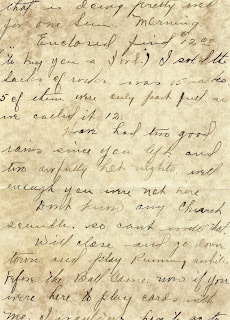 that is doing pretty well
for one Sun morning
Enclosed find $12.00
to buy you a Ford.) I sold the
sacks of rocks was 15 sacks
5 of them were only part full so
we called it 12.
Have had two good
rains since you left and
two awfully hot nights well
enough you were not here
Don't know any Church
scandle. so cant write that.
Will close and go down
town and play Running
before the Ball Game. now if you
were here to play cards with
me, I